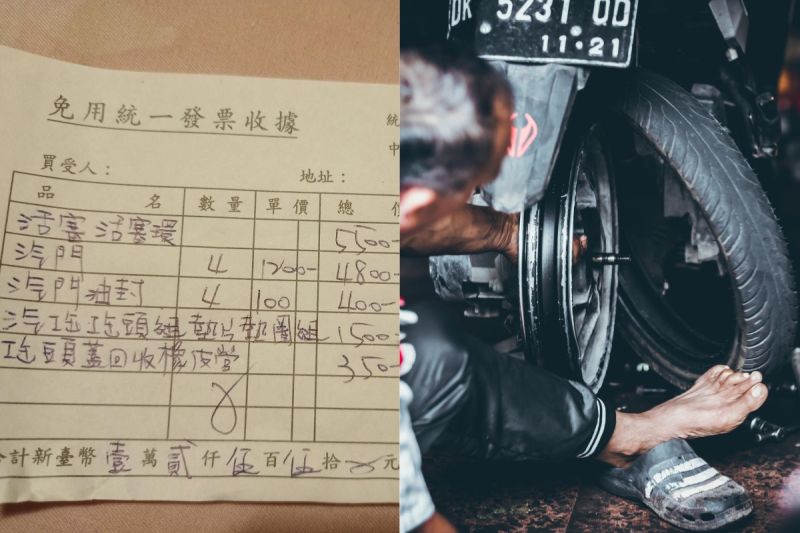 免用統一發票收據
統
中
買受人：
地址：
品 名 數量 單價 總
活塞 活塞環 5500-
汽門 4 1200- 4800-
汽門油封 4 100 400-
汽缸缸頭組墊片墊圈組 1500-
缸頭蓋回收橡皮管 350-
合計新臺幣壹萬貳仟伍百伍拾 元
DK 5231 QD
11·21